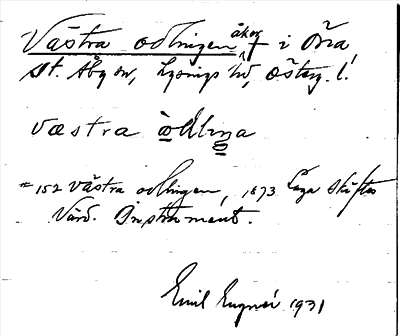 Västra odlingen åker i Öna
St. Åby sn, Lysings hd, Österg. l.
væstra òdliŋa
#152 västra odlingen, 1873 Laga skiftes
Värd. Instrument.
Emil 1931